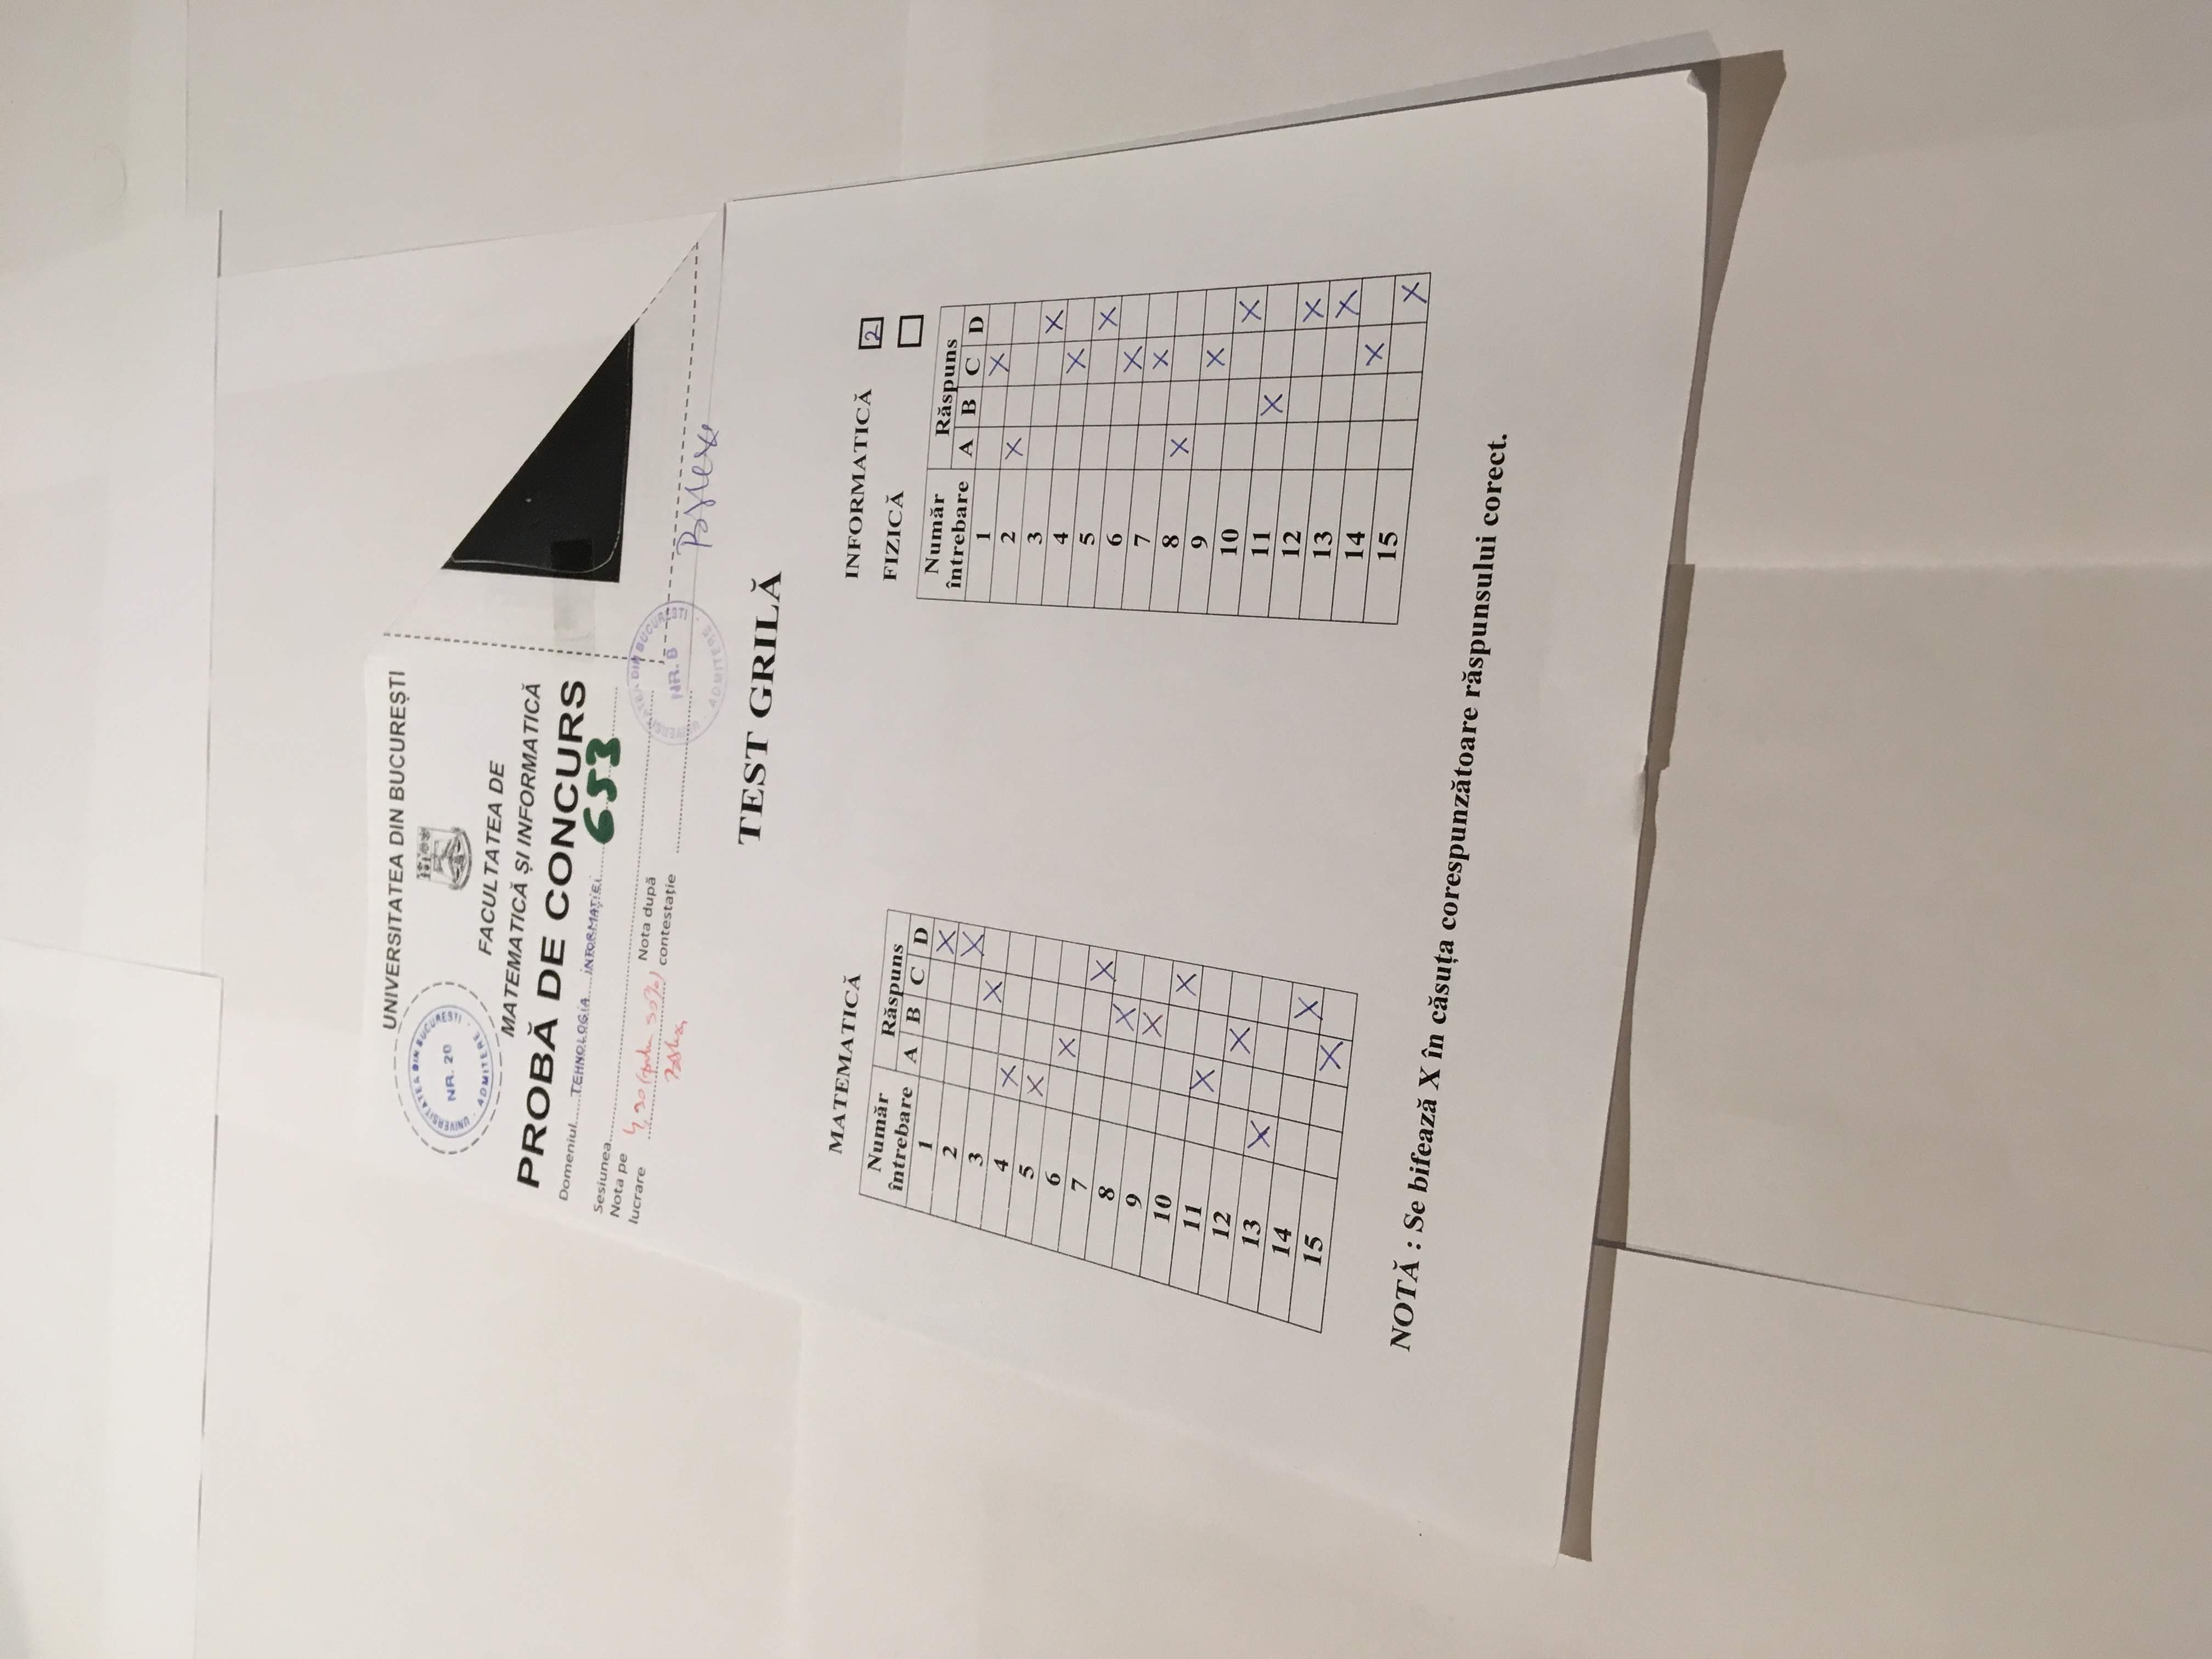 UNIVERSITATEA DIN BUCUREȘTI
UNIVERSITATEA DIN BUCUREȘTI
NR. 20
ADMITERE
FACULTATEA DE
MATEMATICĂ ȘI INFORMATICĂ
PROBĂ DE CONCURS
Domeniul TEHNOLOGIA INFORMAȚIEI 653
Sesiunea
Nota pe lucrare 4,90 50%)
Nota după contestație
UNIVERSITATEA DIN BUCUREȘTI
NR. 8
ADMITERE
TEST GRILĂ
MATEMATICĂ
Număr întrebare Răspuns
A B C D
1 X
2 X
3 X
4 X
5 X
6 X
7 X
8 X
9 X
10 X
11 X
12 X
13 X
14 X
15 X
INFORMATICĂ 2
FIZICĂ
Număr întrebare Răspuns
A B C D
1 X
2 X
3 X
4 X
5 X
6 X
7 X
8 X
9 X
10 X
11 X
12 X
13 X
14 X
15 X
NOTĂ : Se bifează X în căsuța corespunzătoare răspunsului corect.